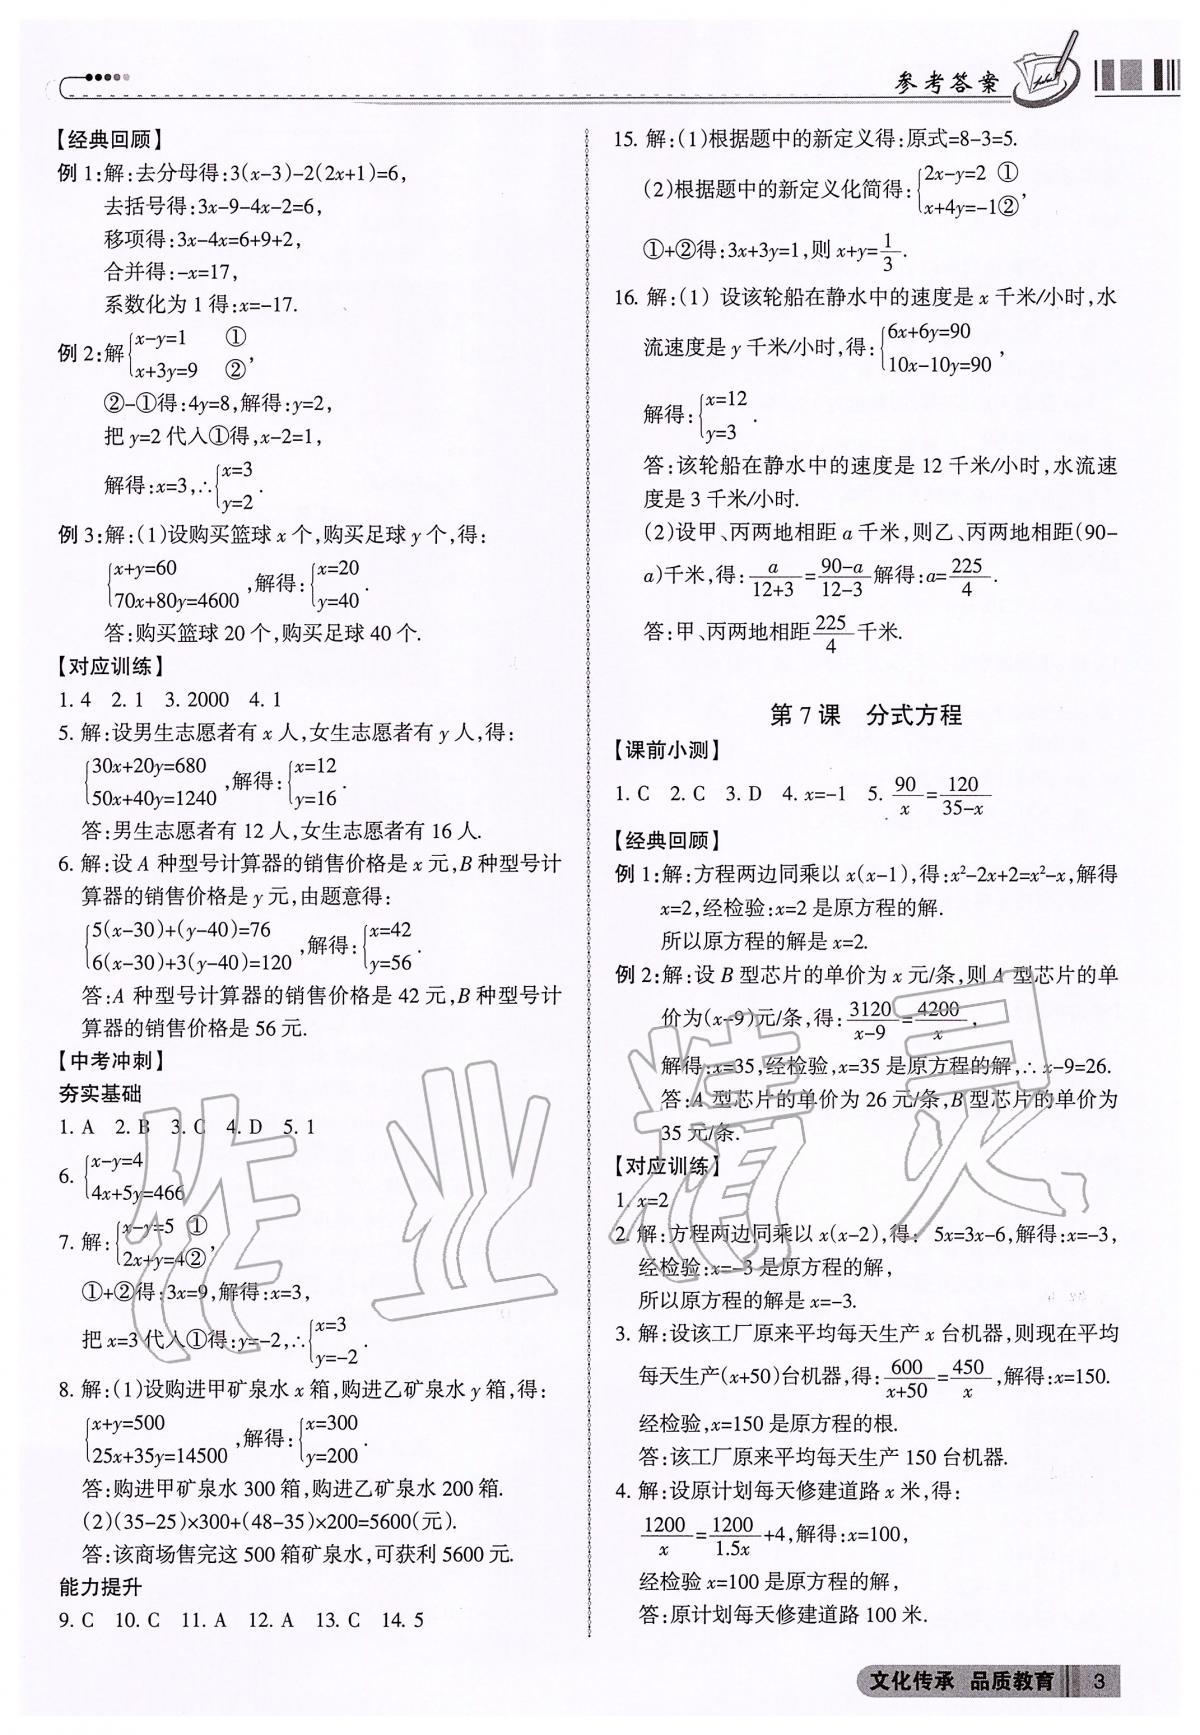 参考答案
【经典回顾】
例 1:解:去分母得:3(x-3)-2(2x+1)=6,
去括号得:3x-9-4x-2=6,
移项得:3x-4x=6+9+2,
合并得:-x=17,
系数化为 1 得:x=-17.
例 2:解{x-y=1 ①
x+3y=9 ②,
②-①得:4y=8,解得:y=2,
把 y=2 代入①得,x-2=1,
解得:x=3,∴{x=3
y=2.
例 3:解:(1)设购买篮球 x 个,购买足球 y 个,得:
{x+y=60
70x+80y=4600,解得:{x=20
y=40.
答:购买篮球 20 个,购买足球 40 个.
【对应训练】
1. 4 2. 1 3. 2000 4. 1
5. 解:设男生志愿者有 x 人,女生志愿者有 y 人,得:
{30x+20y=680
50x+40y=1240,解得:{x=12
y=16.
答:男生志愿者有 12 人,女生志愿者有 16 人.
6. 解:设 A 种型号计算器的销售价格是 x 元,B 种型号计
算器的销售价格是 y 元,由题意得:
{5(x-30)+(y-40)=76
6(x-30)+3(y-40)=120,解得:{x=42
y=56.
答:A 种型号计算器的销售价格是 42 元,B 种型号计
算器的销售价格是 56 元.
【中考冲刺】
夯实基础
1. A 2. B 3. C 4. D 5. 1
6. {x-y=4
4x+5y=466
7. 解:{x-y=5 ①
2x+y=4②,
①+②得:3x=9,解得:x=3,
把 x=3 代入①得:y=-2,∴{x=3
y=-2.
8. 解:(1)设购进甲矿泉水 x 箱,购进乙矿泉水 y 箱,得:
{x+y=500
25x+35y=14500,解得:{x=300
y=200.
答:购进甲矿泉水 300 箱,购进乙矿泉水 200 箱.
(2)(35-25)×300+(48-35)×200=5600(元).
答:该商场售完这 500 箱矿泉水,可获利 5600 元.
能力提升
9. C 10. C 11. A 12. A 13. C 14. 5
15. 解:(1)根据题中的新定义得:原式=8-3=5.
(2)根据题中的新定义化简得:{2x-y=2 ①
x+4y=-1②,
①+②得:3x+3y=1,则 x+y=1/3.
16. 解:(1) 设该轮船在静水中的速度是 x 千米/小时,水
流速度是 y 千米/小时,得:{6x+6y=90
10x-10y=90,
解得:{x=12
y=3.
答:该轮船在静水中的速度是 12 千米/小时,水流速
度是 3 千米/小时.
(2)设甲、丙两地相距 a 千米,则乙、丙两地相距(90-
a)千米,得:a/(12+3)=(90-a)/(12-3)解得:a=225/4.
答:甲、丙两地相距225/4千米.
第 7 课 分式方程
【课前小测】
1. C 2. C 3. D 4. x=-1 5. 90/x=120/(35-x)
【经典回顾】
例 1:解:方程两边同乘以 x(x-1),得:x²-2x+2=x²-x,解得
x=2,经检验:x=2 是原方程的解.
所以原方程的解是 x=2.
例 2:解:设 B 型芯片的单价为 x 元/条,则 A 型芯片的单
价为(x-9)元/条,得:3120/(x-9)=4200/x,
解得:x=35,经检验,x=35 是原方程的解,∴x-9=26.
答:A 型芯片的单价为 26 元/条,B 型芯片的单价为
35 元/条.
【对应训练】
1. x=2
2. 解:方程两边同乘以 x(x-2),得: 5x=3x-6,解得:x=-3,
经检验:x=-3 是原方程的解,
所以原方程的解是 x=-3.
3. 解:设该工厂原来平均每天生产 x 台机器,则现在平均
每天生产(x+50)台机器,得:600/(x+50)=450/x,解得:x=150.
经检验,x=150 是原方程的根.
答:该工厂原来平均每天生产 150 台机器.
4. 解:设原计划每天修建道路 x 米,得:
1200/x=1200/1.5x+4,解得:x=100,
经检验 x=100 是原方程的解,
答:原计划每天修建道路 100 米.
文化传承 品质教育 3
作业精灵